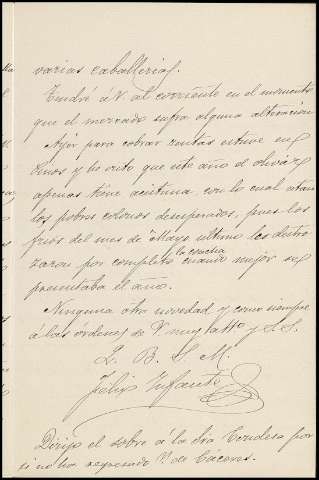 varias caballerias.
Tendré á V. al corriente en el momento
que el mercado sufra alguna alteracion
Ayér para cobrar rentas estuve en
y he visto que este año el olivár
apenas tiene aceituna, con lo cual están
los pobres colonos desesperados, pues los
frios del mes de Mayo último les destro
zaron por completo la cosecha cuando mejór se
presentaba el año.
Ninguna otra novedad y como siempre
á las órdenes de V muy atto y S.S.
Q. B. S. M.
Félix Infante
Dirijo el sobre á la Sra Condesa por
si no ha regresado V. de Cáceres.